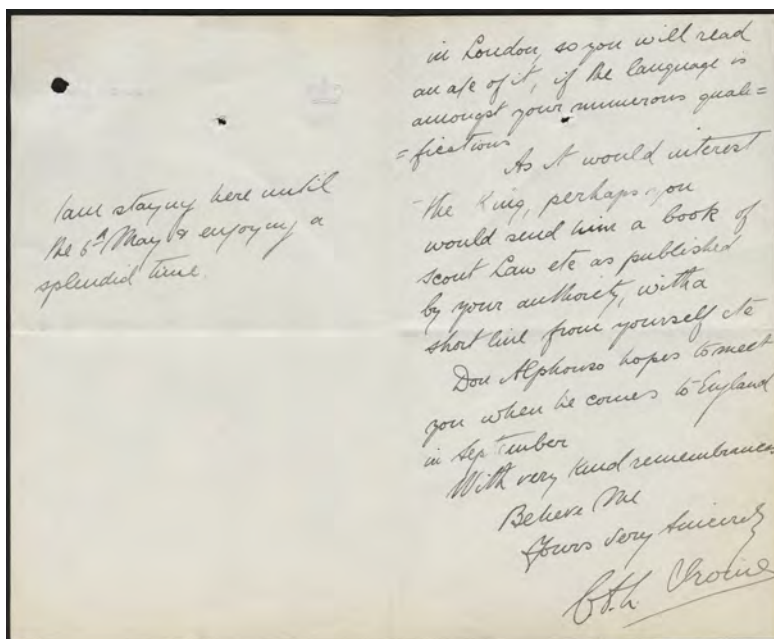 I am staying here until
the 6th May & enjoying a
splendid time.
in London, so you will read
an a/c of it, if the language is
amongst your numerous quali=
=fications
As it would interest
the King, perhaps you
would send him a book of
Scout Law etc as published
by your authority, with a
short line from yourself etc
Don Alphonso hopes to meet
you when he comes to England
in September
With very kind remembrances
Believe Me
Yours very sincerely